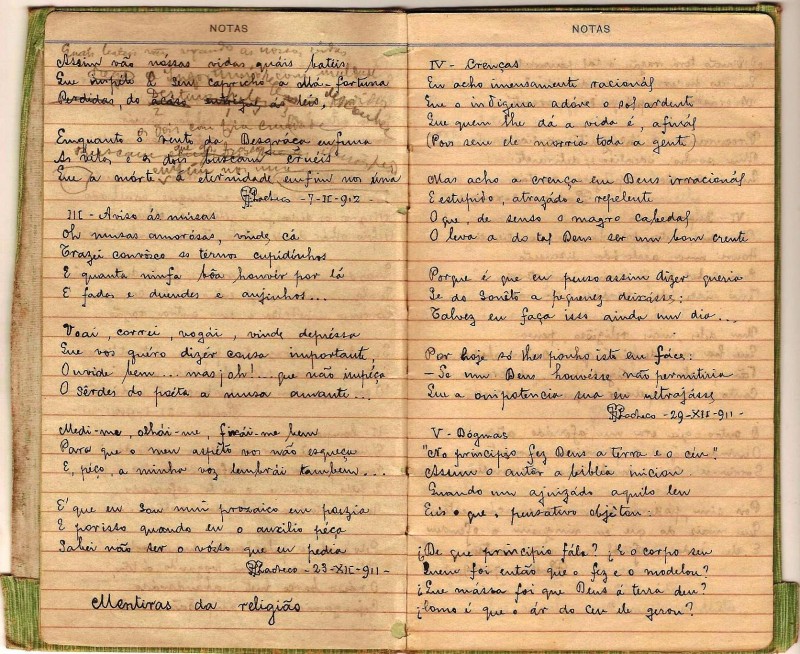 NOTAS
Assim vão nossas vidas quáis batéis
Que impéle a seu capricho a Má-fortuna
Perdidas, do ás déis,
Emquanto o vento da Desgraça enfuna
As vélas, e os dois buscam cruéis
Que a mórte á eternidade emfim nos úna
Pacheco - 7-II-912 -
III - Aviso ás musas
Oh musas amorósas, vinde cá
Trazei comvôsco os ternos cupidinhos
E quanta ninfa bôa houvér por lá
E fadas e duendes e anjinhos...
Voai, correi, vogái, vinde depréssa
Que vos quéro dizêr cousa importante,
Ouvide bem... mas, oh!... que não impéça
O sêrdes do poéta a musa amante...
Medi-me, olhái-me, fixái-me bem
Para que o meu aspéto vos não esqueça
E, péço, a minha voz lembrái tambem...
E' que eu sou mui prozaico em poezia
E porisso quando eu o auxilio péça
Sabei não ser o vósso que eu pedia
Pacheco - 23-XII-911 -
Mentiras da religião
NOTAS
IV - Crenças
Eu acho imensamente racionál
Que o indigena adóre o sol ardente
Que quem lhe dá a vida é, afinál
(Pois sem ele morria toda a gente)
Mas acho a crença em Deus irracionál
E estupido, atrazádo e repelente
O que, de senso o magro cabedal
O leva a do tal Deus ser um bom crente
Porque é que eu penso assim dizer queria
Se do sonêto a pequenez deixásse:
Talvez eu faça isso ainda um dia...
Por hoje só lhes ponho isto em fáce:
- Se um Deus houvésse não permitiria
Que a omipotencia sua eu ultrajásse
Pacheco - 29-XII-911 -
V - Dógmas
"No principio fez Deus a terra e o céu".
Assim o autor a biblia iniciou
Quando um ajuizádo aquilo leu
Eis o que, pensativo objétou:
¿De que principio fála? ¿E o corpo seu
Quem foi então que o fez e o modelou?
¿Que mássa foi que Deus á terra deu?
¿Como é que o ár do ceu ele gerou?